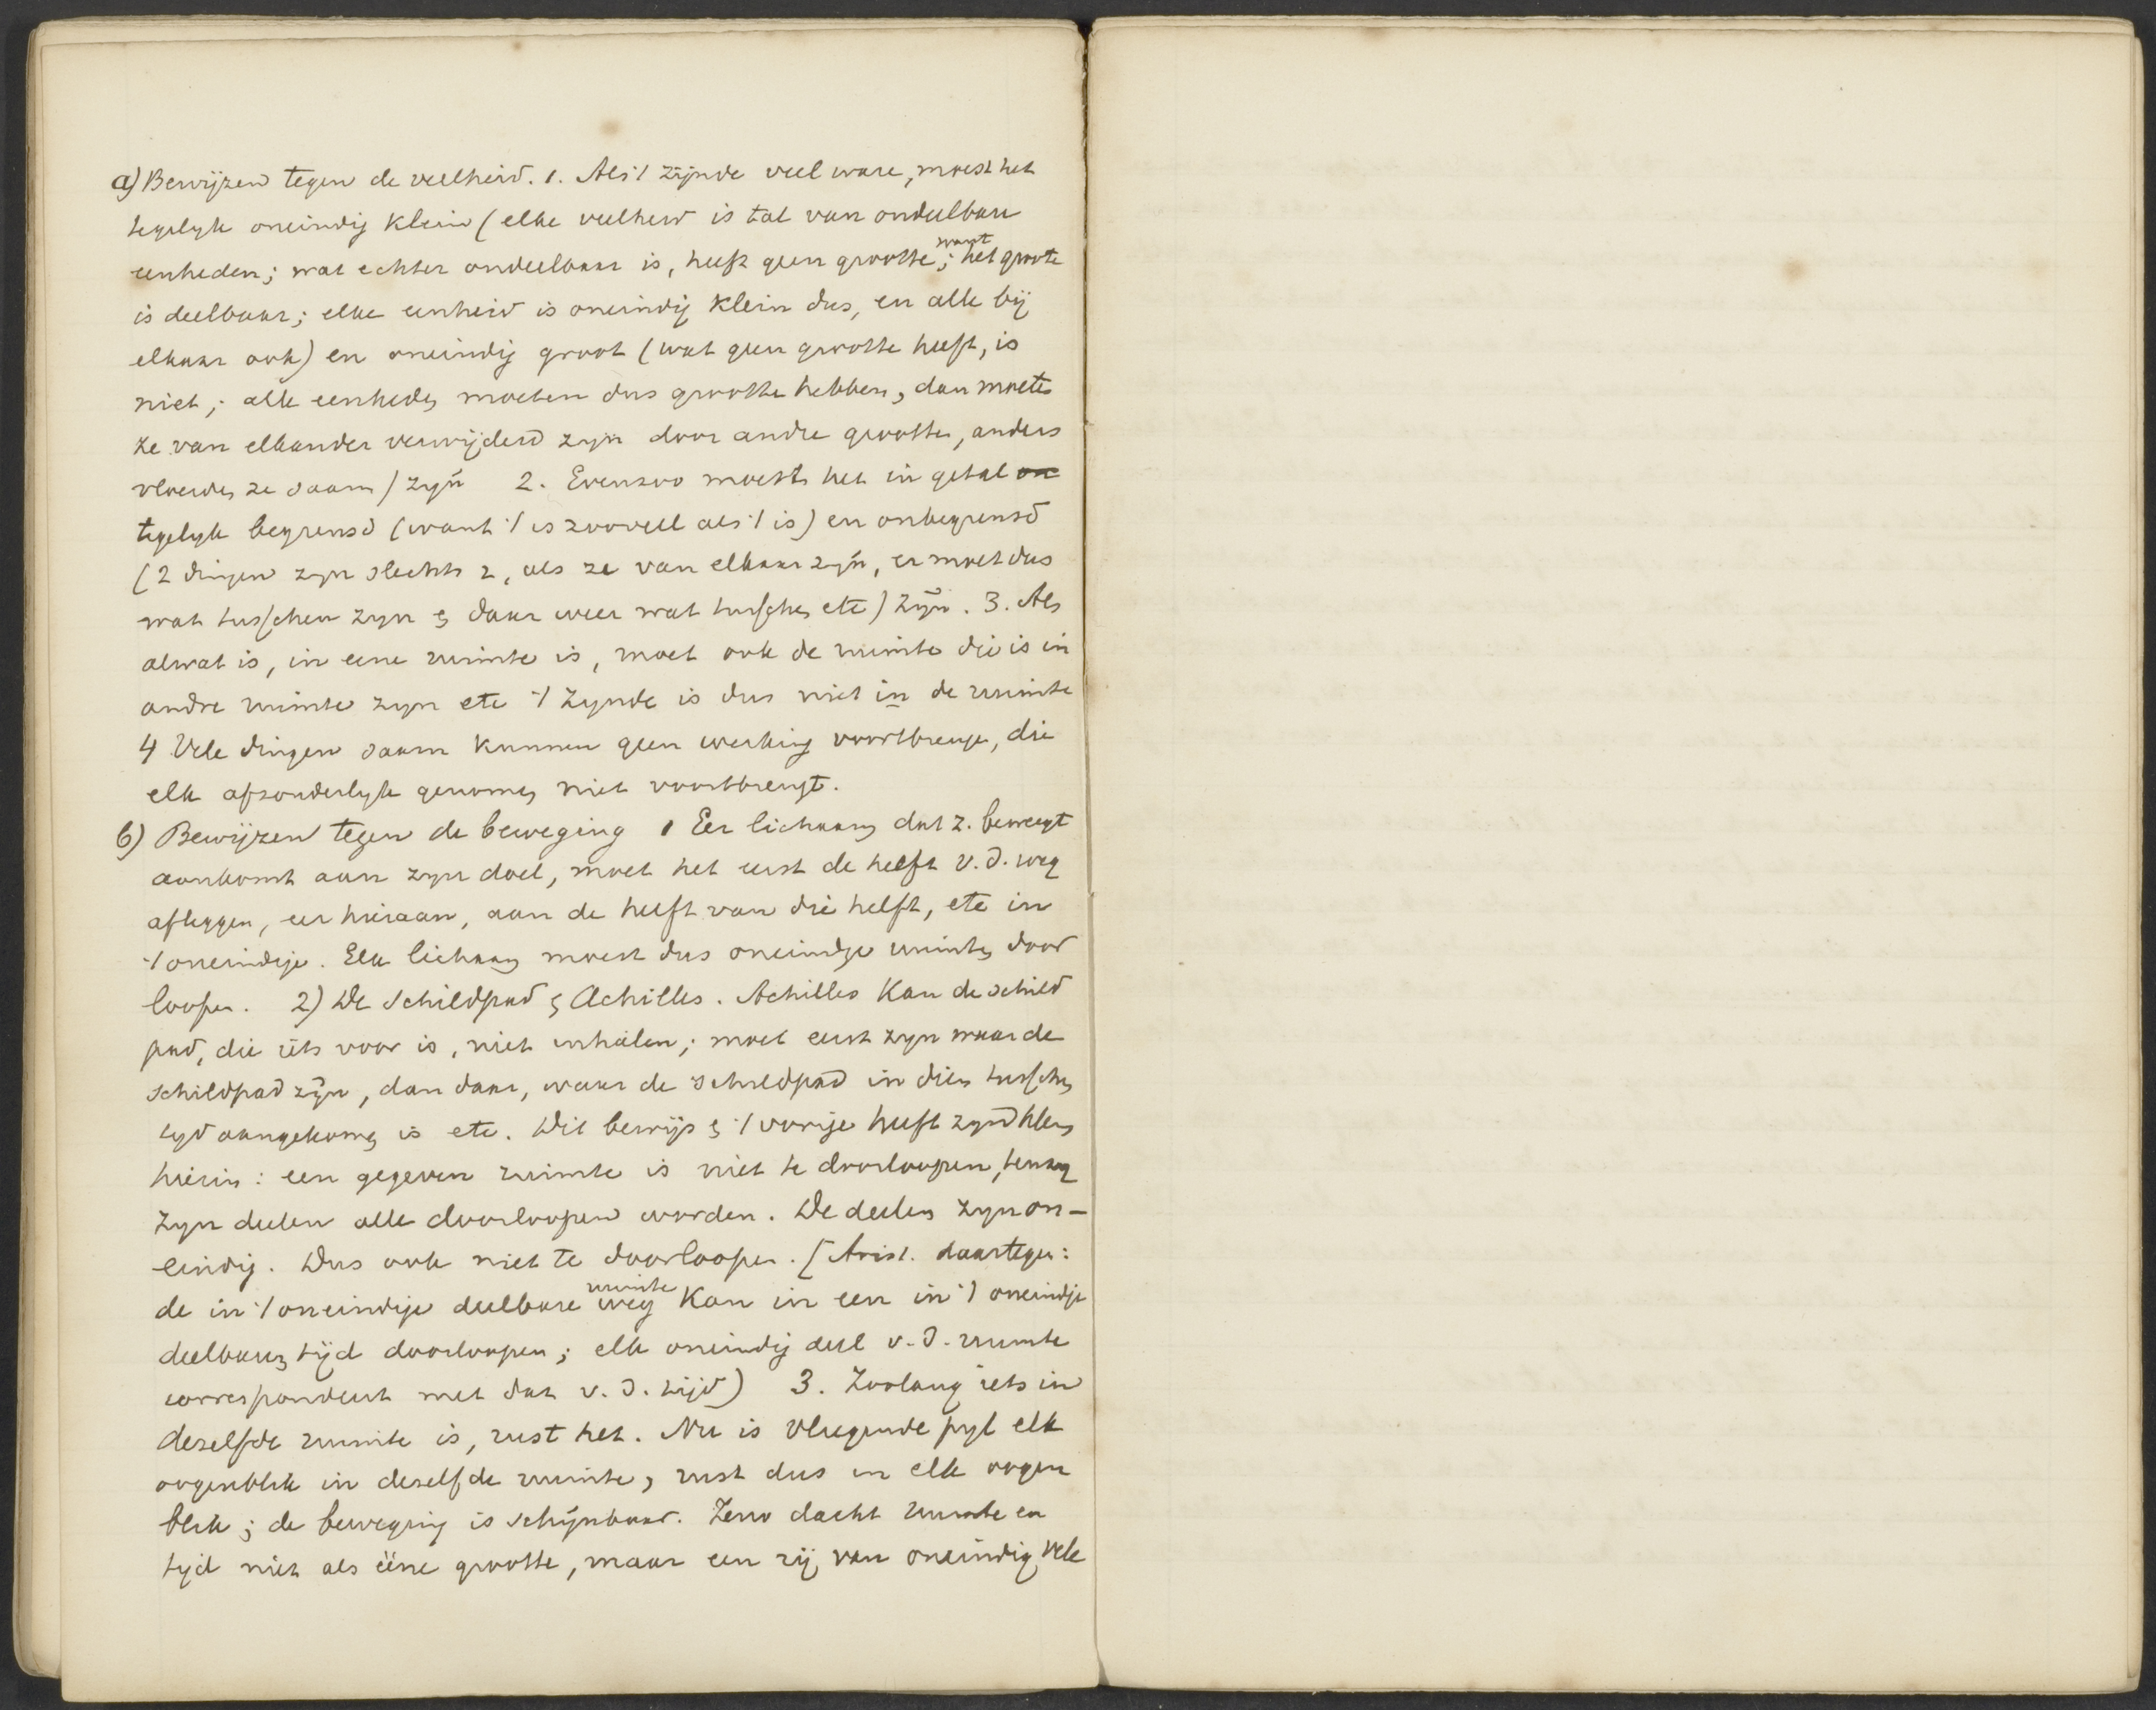 a) Bewijzen tegen de veelheid. 1. Als 't zijnde veel ware, moest het
tegelyk oneindig klein (elke veelheid is tal van ondeelbare
eenheden; wat echter ondeelbaar is, heeft geen grootte; want het groote
is deelbaar; elke eenheid is oneindig klein dus, en alle bij
elkaar ook) en oneindig groot (wat geen grootte heeft, is
niet; alle eenheden moeten dus grootte hebben, dan moeten
ze van elkander verwijderd zyn door andre grootten, anders
vloeiden ze saam) zyn 2. Evenzoo moest het in getal on
tegelyk begrensd (want 't is zooveel als 't is) en onbegrensd
(2 dingen zyn slechts 2, als ze van elkaar zyn, er moet dus
wat tusschen zyn & daar weer wat tusschen etc) zyn. 3. Als
alwat is, in eene ruimte is, moet ook de ruimte die is in
andre ruimte zyn etc 't Zynde is dus niet in de ruimte
4 Vele dingen saam kunnen geen werking voortbrengen, die
elk afzonderlyk genomen niet voortbrengt.
b) Bewijzen tegen de beweging 1 Eer lichaam dat z. beweegt
aankomt aan zyn doel, moet het eerst de helft v.d. weg
afleggen, eer hieraan, aan de helft van die helft, etc in
't oneindige. Elk lichaam moest dus oneindige ruimten door
loopen. 2) De Schildpad & Achilles. Achilles kan de schild
pad, die iets voor is, niet inhalen; moet eerst zyn waar de
schildpad zyn, dan daar, waar de schildpad in dien tusschen
tyd aangekomen is etc. Dit bewijs & 't vorige heeft zyn klem
hierin: een gegeven ruimte is niet te doorloopen, tenzy
zyn deelen alle doorloopen worden. De deelen zyn on-
eindig. Dus ook niet te doorloopen. [Arist. daartegen:
de in 't oneindige deelbare weg ruimte kan in een in 't oneindige
deelbaren tijd doorloopen; elk oneindig deel v.d. ruimte
correspondeert met dat v.d. tijd) 3. Zoolang iets in
deselfde ruimte is, rust het. Nu is vliegende pyl elk
oogenblik in deselfde ruimte, rust dus in elk oogen
blik; de beweging is schijnbaar. Zeno dacht ruimte en
tyd niet als ééne grootte, maar een rij van oneindig vele